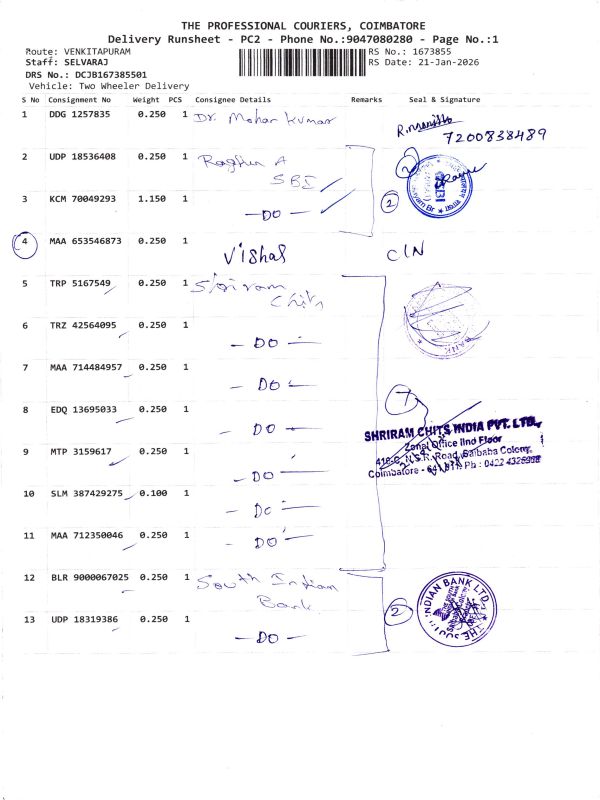 THE PROFESSIONAL COURIERS, COIMBATORE
Delivery Runsheet - PC2 - Phone No.:9047080280 - Page No.:1
Route: VENKITAPURAM
RS No.: 1673855
Staff: SELVARAJ
RS Date: 21-Jan-2026
DRS No.: DCJB167385501
Vehicle: Two Wheeler Delivery
S No Consignment No Weight PCS Consignee Details Remarks Seal & Signature
1 DDG 1257835 0.250 1 Dr. Mohan Kumar
7200838489
2 UDP 18536408 0.250 1 Raghu A
SBI
3 KCM 70049293 1.150 1 - DO -
2
4 MAA 653546873 0.250 1 Vishal C/N
5 TRP 5167549 0.250 1 Shriram
Chits
6 TRZ 42564095 0.250 1 - DO -
7 MAA 714484957 0.250 1 - DO -
8 EDQ 13695033 0.250 1 - DO -
7
SHRIRAM CHITS INDIA PVT. LTD.,
Zonal Office IInd Floor
416-C, N.S.R. Road, Saibaba Colony,
Coimbatore - 641 011 Ph : 0422 4325998
9 MTP 3159617 0.250 1 - DO -
10 SLM 387429275 0.100 1 - DO -
11 MAA 712350046 0.250 1 - DO -
12 BLR 9000067025 0.250 1 South Indian
Bank
2
THE SOUTH INDIAN BANK LTD.
13 UDP 18319386 0.250 1 - DO -